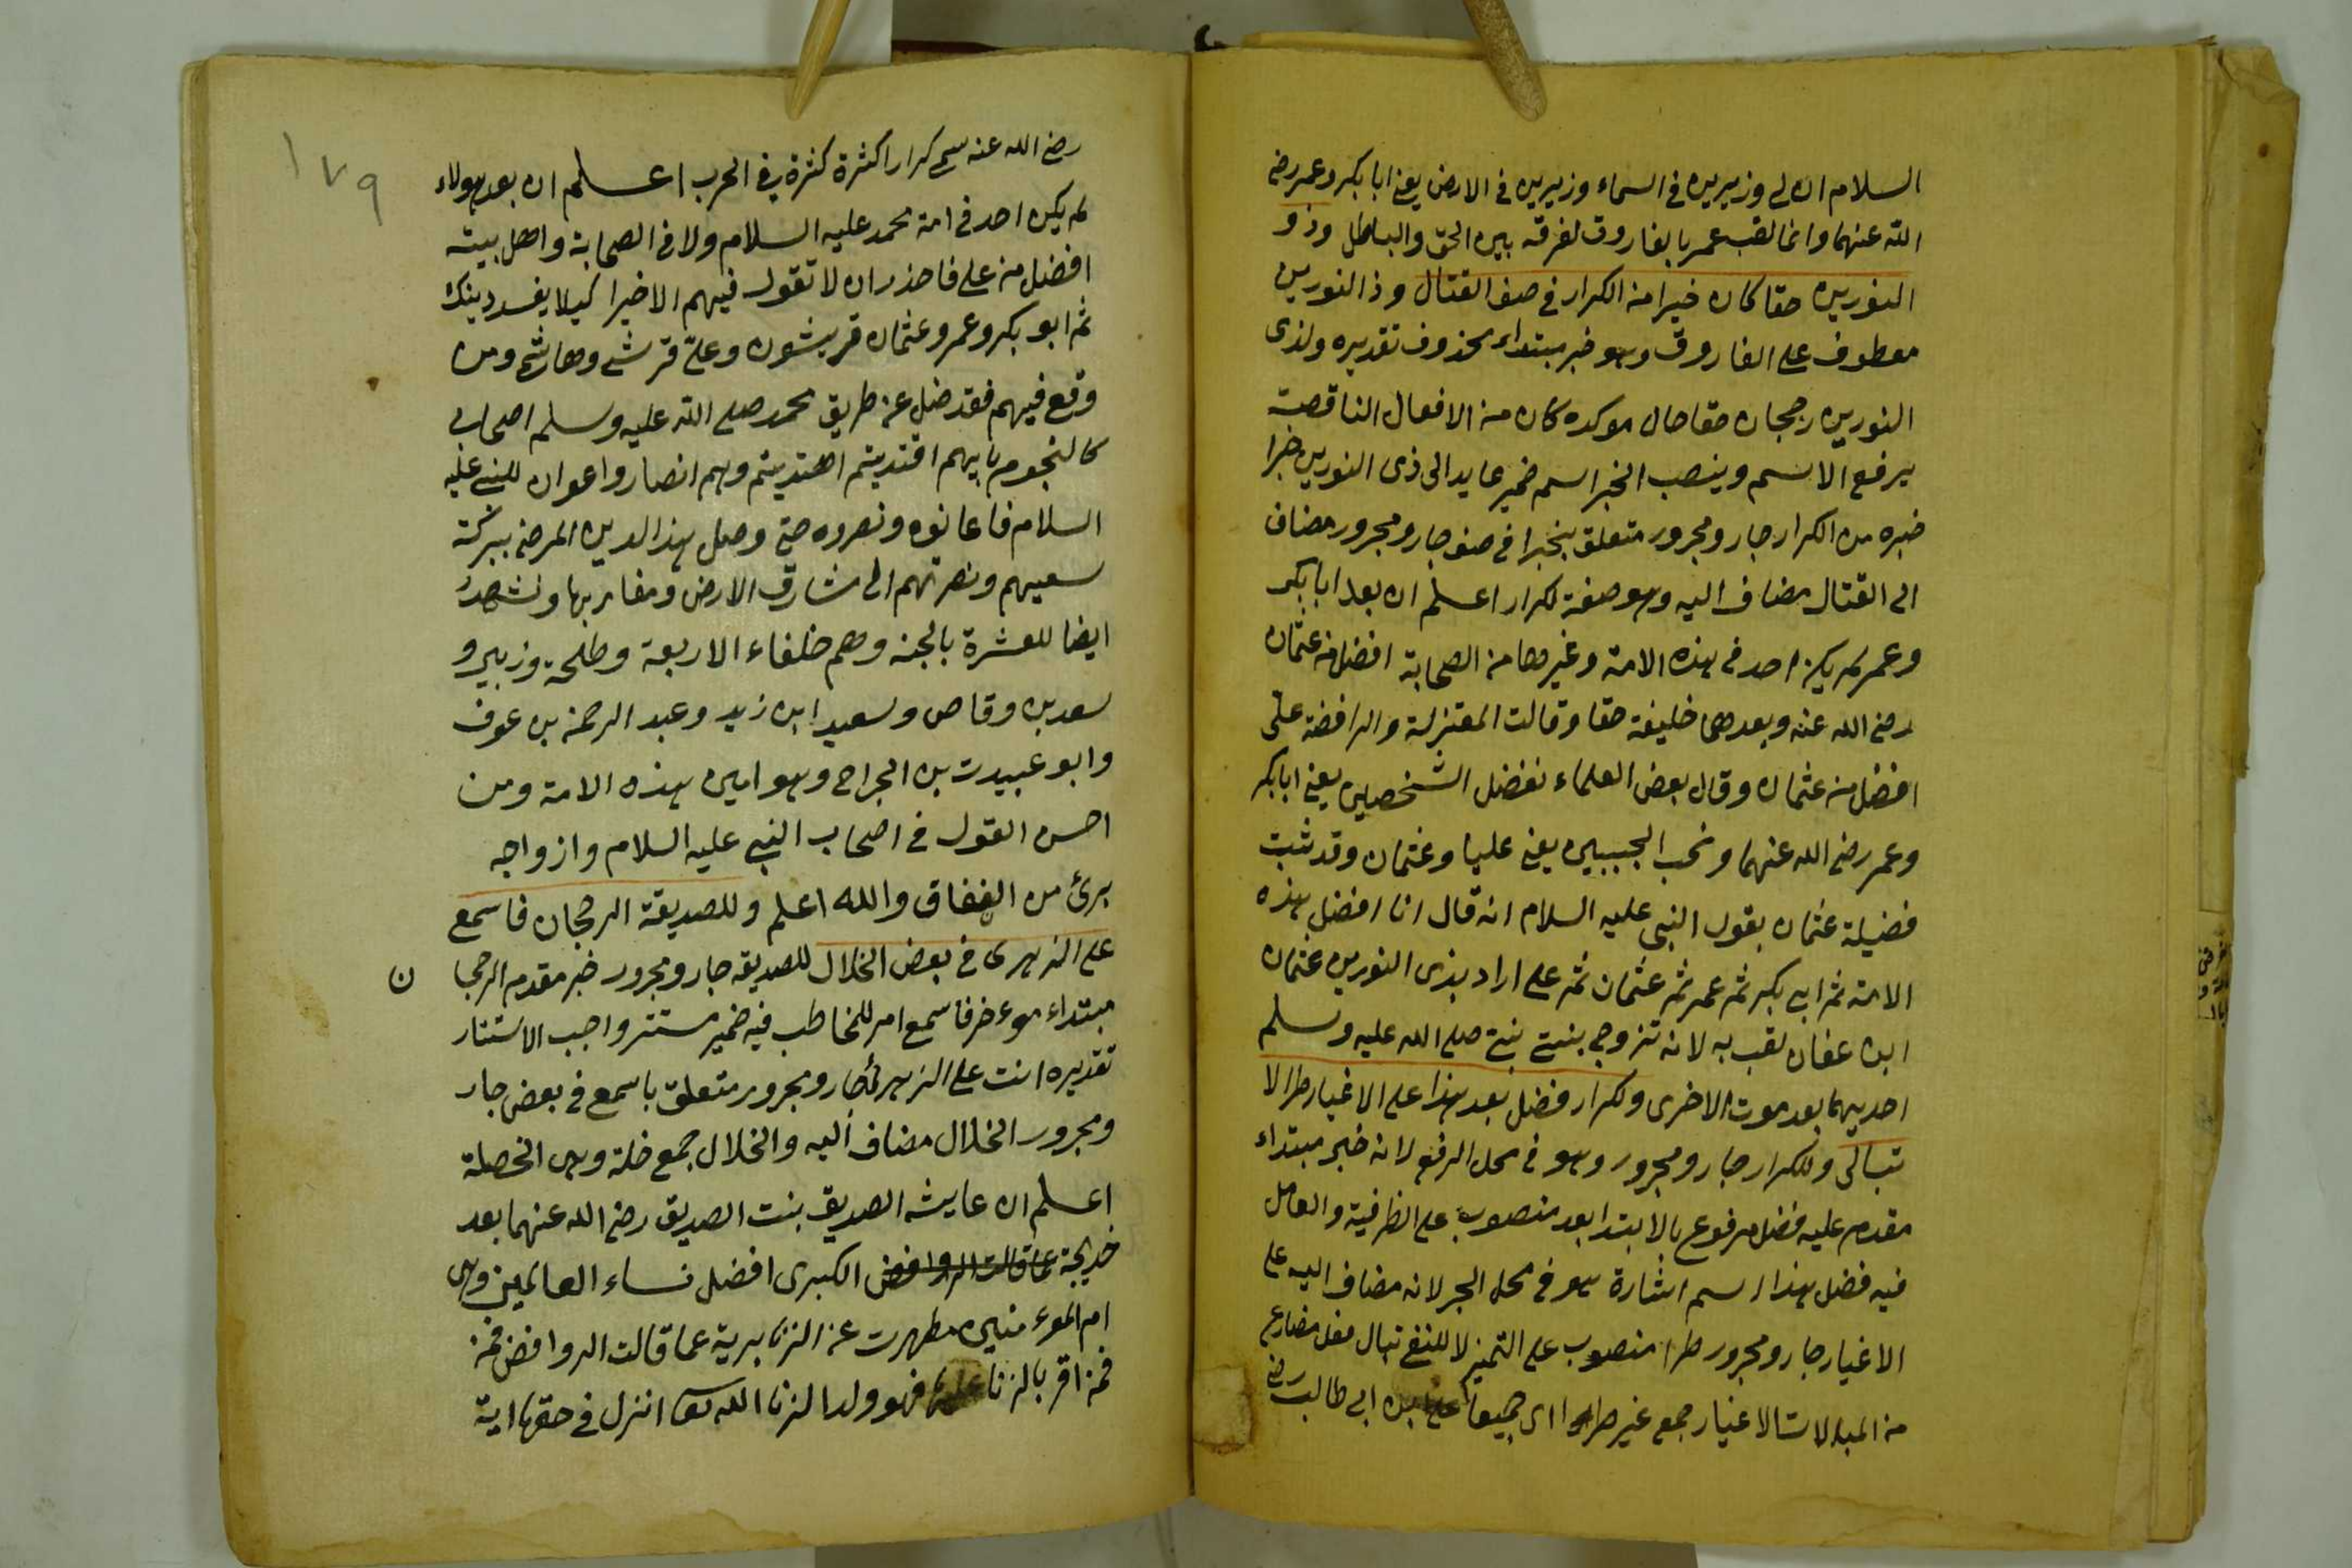 السلام ان لى وزيرين فى السماء وزيرين فى الارض يعنى ابا بكر وعمر رضى
الله عنهما وانما لقب عمر بالفاروق لفرقه بين الحق والباطل وذو
النورين حقا كان خيرا من الكرار فى صف القتال وذالنورين
معطوف على الفاروق وهو خبر مبتداء محذوف تقديره ولذى
النورين رجحان حقا حال موكده كان من الافعال الناقصة
يرفع الاسم وينصب الخبر اسم ضمير عايد الى ذى النورين خيرا
خبره من الكرار جار ومجرور متعلق بخيرا فى صف جار ومجرور مضاف
الى القتال مضاف اليه وهو صفة لكرار اعلم ان بعد ابا بكر
وعمر لم يكن احد فى هذه الامة وغيرها من الصحابة افضل من عثمان
رضى الله عنه وبعدهما خليفة حقا وقالت المعتزلة والرافضة على
افضل من عثمان وقال بعض العلماء نفضل الشخصين يعنى ابا بكر
وعمر رضى الله عنهما ونحب الحبيبين يعنى عليا وعثمان وقد ثبت
فضيلة عثمان بقول النبى عليه السلام انه قال انا افضل هذه
الامة ثم ابى بكر ثم عمر ثم عثمان ثم على اراد بذى النورين عثمان
ابن عفان لقب به لانه تزوج بنتى نبى صلى الله عليه وسلم
احديهما بعد موت الاخرى ولكرار فضل بعد هذا على الاغيار طرا لا
تبالى وللكرار جار ومجرور وهو فى محل الرفع لانه خبر مبتداء
مقدم عليه فضل مرفوع بالابتدا بعد منصوب على الظرفية والعامل
فيه فضل هذا اسم اشارة هو فى محل الجر لانه مضاف اليه على
الاغيار جار ومجرور طرا منصوب على التميز لا للنفى تبال فعل مضارع
من المبالات الاغيار جمع غير طرا اى جميعا على بن ابى طالب رضى
١٧٩
رضى الله عنه سمى كرارا كثرة كثرة فى الحرب اعلم ان بعد هولاء
لم يكن احد فى امة محمد عليه السلام ولا فى الصحابة واهل بيته
افضل من على فاحذر ان لا تقول فيهم الا خيرا كيلا يفسد دينك
ثم ابو بكر وعمر وعثمان قريشون وعلى قرشى وهاشمى ومن
وقع فيهم فقد ضل عن طريق محمد صلى الله عليه وسلم اصحابى
كالنجوم بايهم اقتديتم اهتديتم وهم انصار واعوان للنبى عليه
السلام فاعانوه ونصروه حتى وصل هذا الدين المرضى ببركة
سعيهم ونصرتهم الى مشارق الارض ومغاربها ونشهد
ايضا للعشرة بالجنه وهم خلفاء الاربعة وطلحة وزبير و
سعد بن وقاص وسعيد ابن زيد وعبد الرحمن بن عوف
وابو عبيدت بن الجراح وهو امين هذه الامة ومن
احسن القول فى اصحاب النبى عليه السلام وازواجه
برئ من النفاق والله اعلم وللصديقة الرجحان فاسمع
على الزهرى فى بعض الخلال للصديقه جار ومجرور خبر مقدم الرجحا
ن
مبتداء موءخر فاسمع امر للمخاطب فيه ضمير مستتر واجب الاستتار
تقديره انت على الزهرى جار ومجرور متعلق باسمع فى بعض جار
ومجرور الخلال مضاف اليه والخلال جمع خلة وهى الخصلة
اعلم ان عايشه الصديق بنت الصديق رضى الله عنهما بعد
خديجة عما قالت الروافض الكبرى افضل نساء العالمين وهى
ام الموءمنين مطهرت عن الزنا برية عما قالت الروافض فمن
فمن اقر بالزنا عليها فهو ولد الزنا الله تعا انزل فى حقها اية